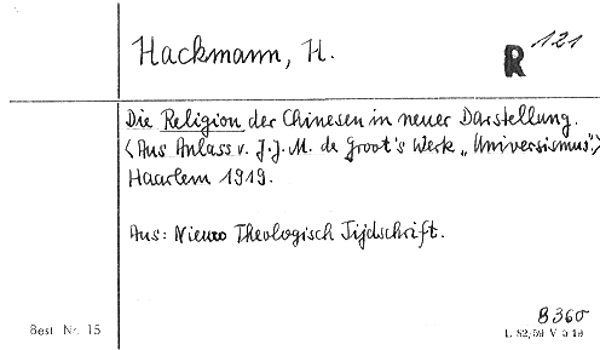 Hackmann, H.
R 121
Die Religion der Chinesen in neuer Darstellung.
<Aus Anlass v. J.J.M. de Groot's Werk „Universismus".>
Haarlem 1919.
Aus: Nieuw Theologisch Tijdschrift.
8360
Best Nr. 15